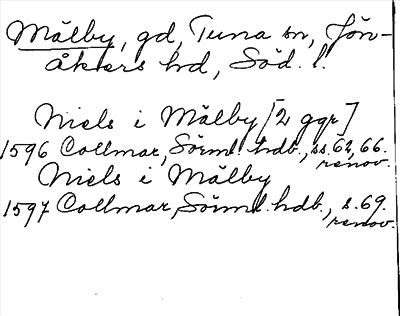 Mälby, gd, Tuna sn, Jön-
åkers hd, Söd. l.
Niels i Mälby [2 ggr]
1596 Collmar, Sörml. hdb., ss. 62, 66.
renov.
Niels i Mälby
1597 Collmar, Sörml. hdb., s. 69.
renov.